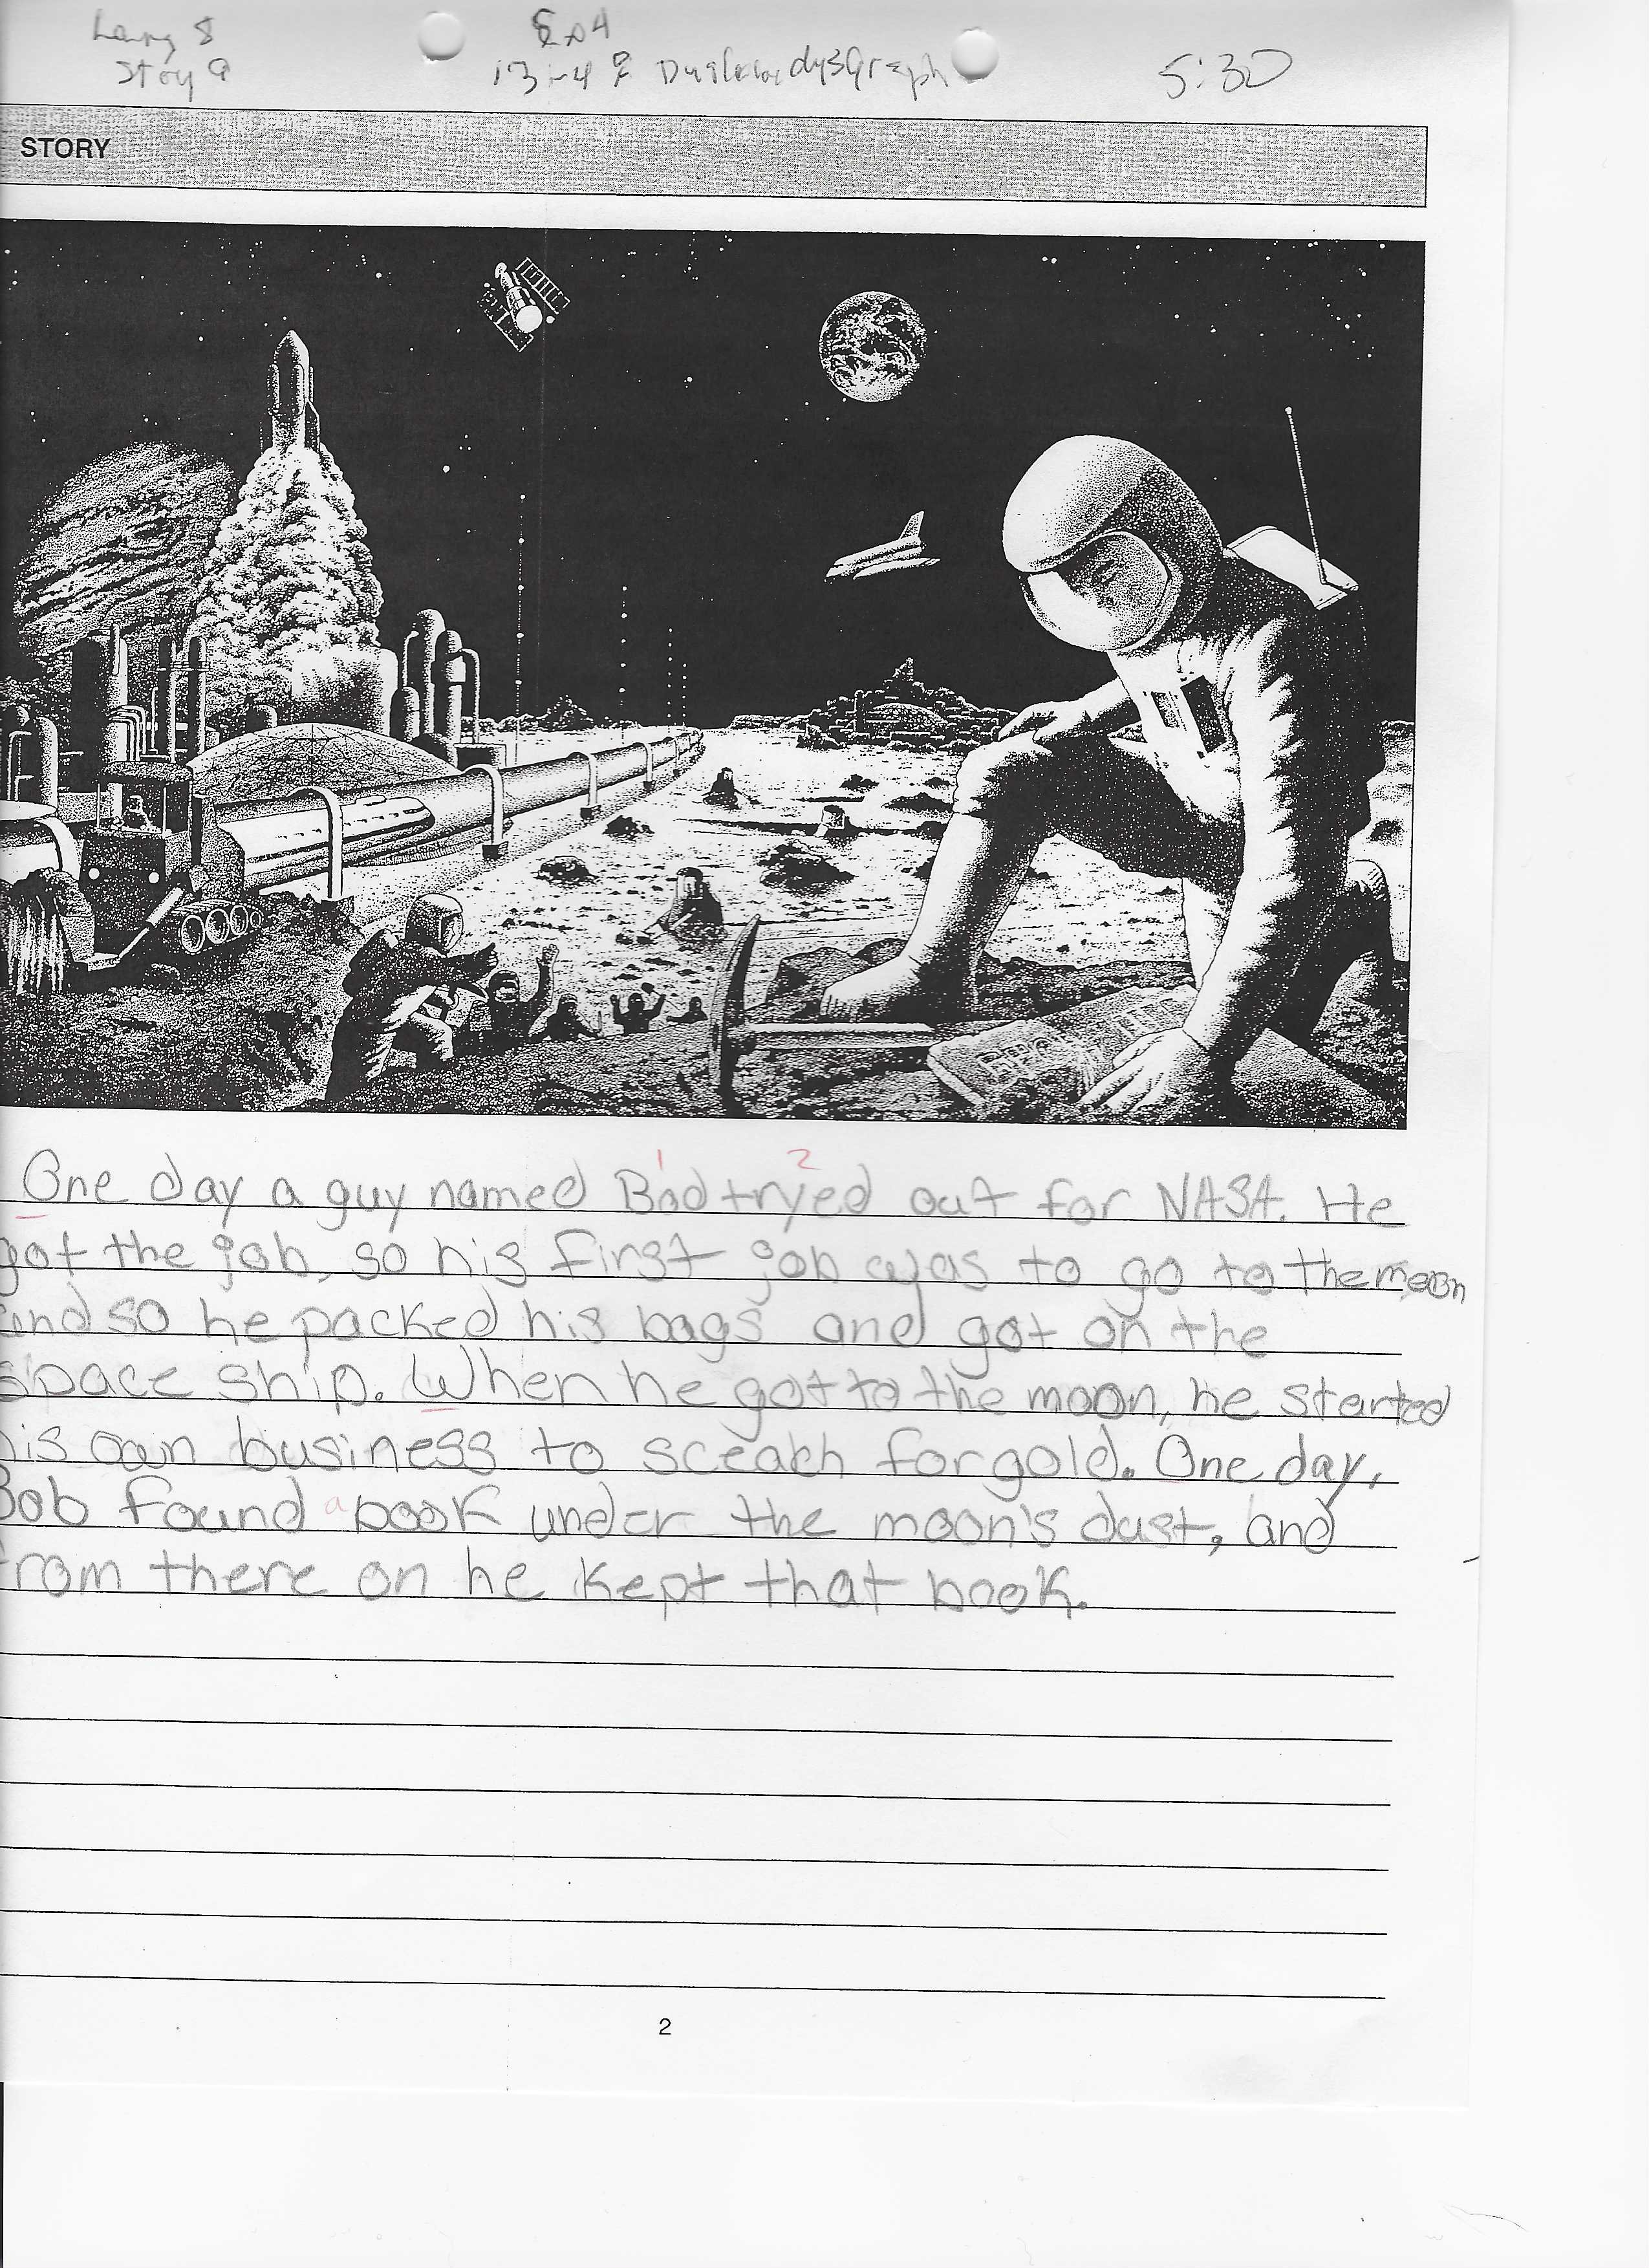 Lang 8
Story 9
5:30
13-4
STORY
1 2
One day a guy named Bod tryed out for NASA. He
got the job, so his first job was to go to the moon
and so he packed his bags and got on the
space ship. When he got to the moon, he started
his own business to sceach for gold. One day,
Bob found a book under the moon's dust, and
from there on he kept that book.
2